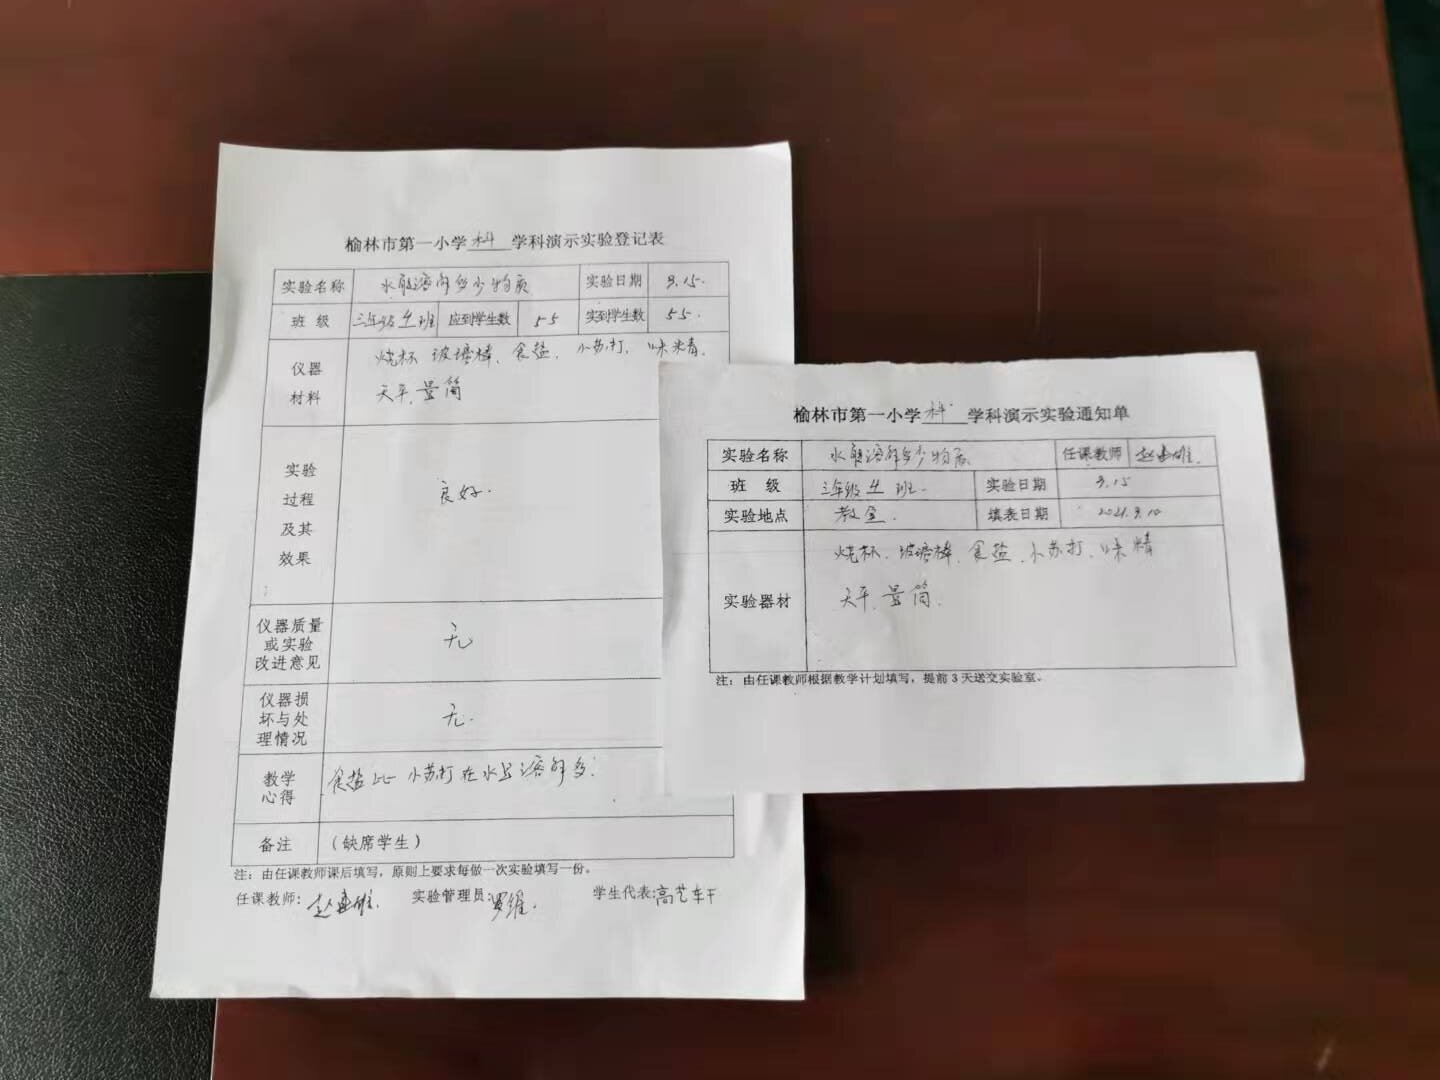 榆林市第一小学 科 学科演示实验登记表
实验名称 水能溶解多少物质 实验日期 9.15.
班 级 三年级 班 应到学生数 55 实到学生数 55.
仪器材料 烧杯 玻璃棒、食盐、小苏打、味精、
天平、量筒
实验过程及其效果 良好.
仪器质量或实验改进意见 无
仪器损坏与处理情况 无.
教学心得 食盐比小苏打在水里溶解多.
备注 (缺席学生)
注：由任课教师课后填写，原则上要求每做一次实验填写一份。
任课教师：赵 雄. 实验管理员：罗维. 学生代表：高艺轩
榆林市第一小学 科 学科演示实验通知单
实验名称 水能溶解多少物质 任课教师 赵 雄.
班 级 三年级 班. 实验日期 9.15
实验地点 教室. 填表日期 2021.9.10
实验器材 烧杯、玻璃棒、食盐、小苏打、味精
天平、量筒.
注：由任课教师根据教学计划填写，提前3天送交实验室。